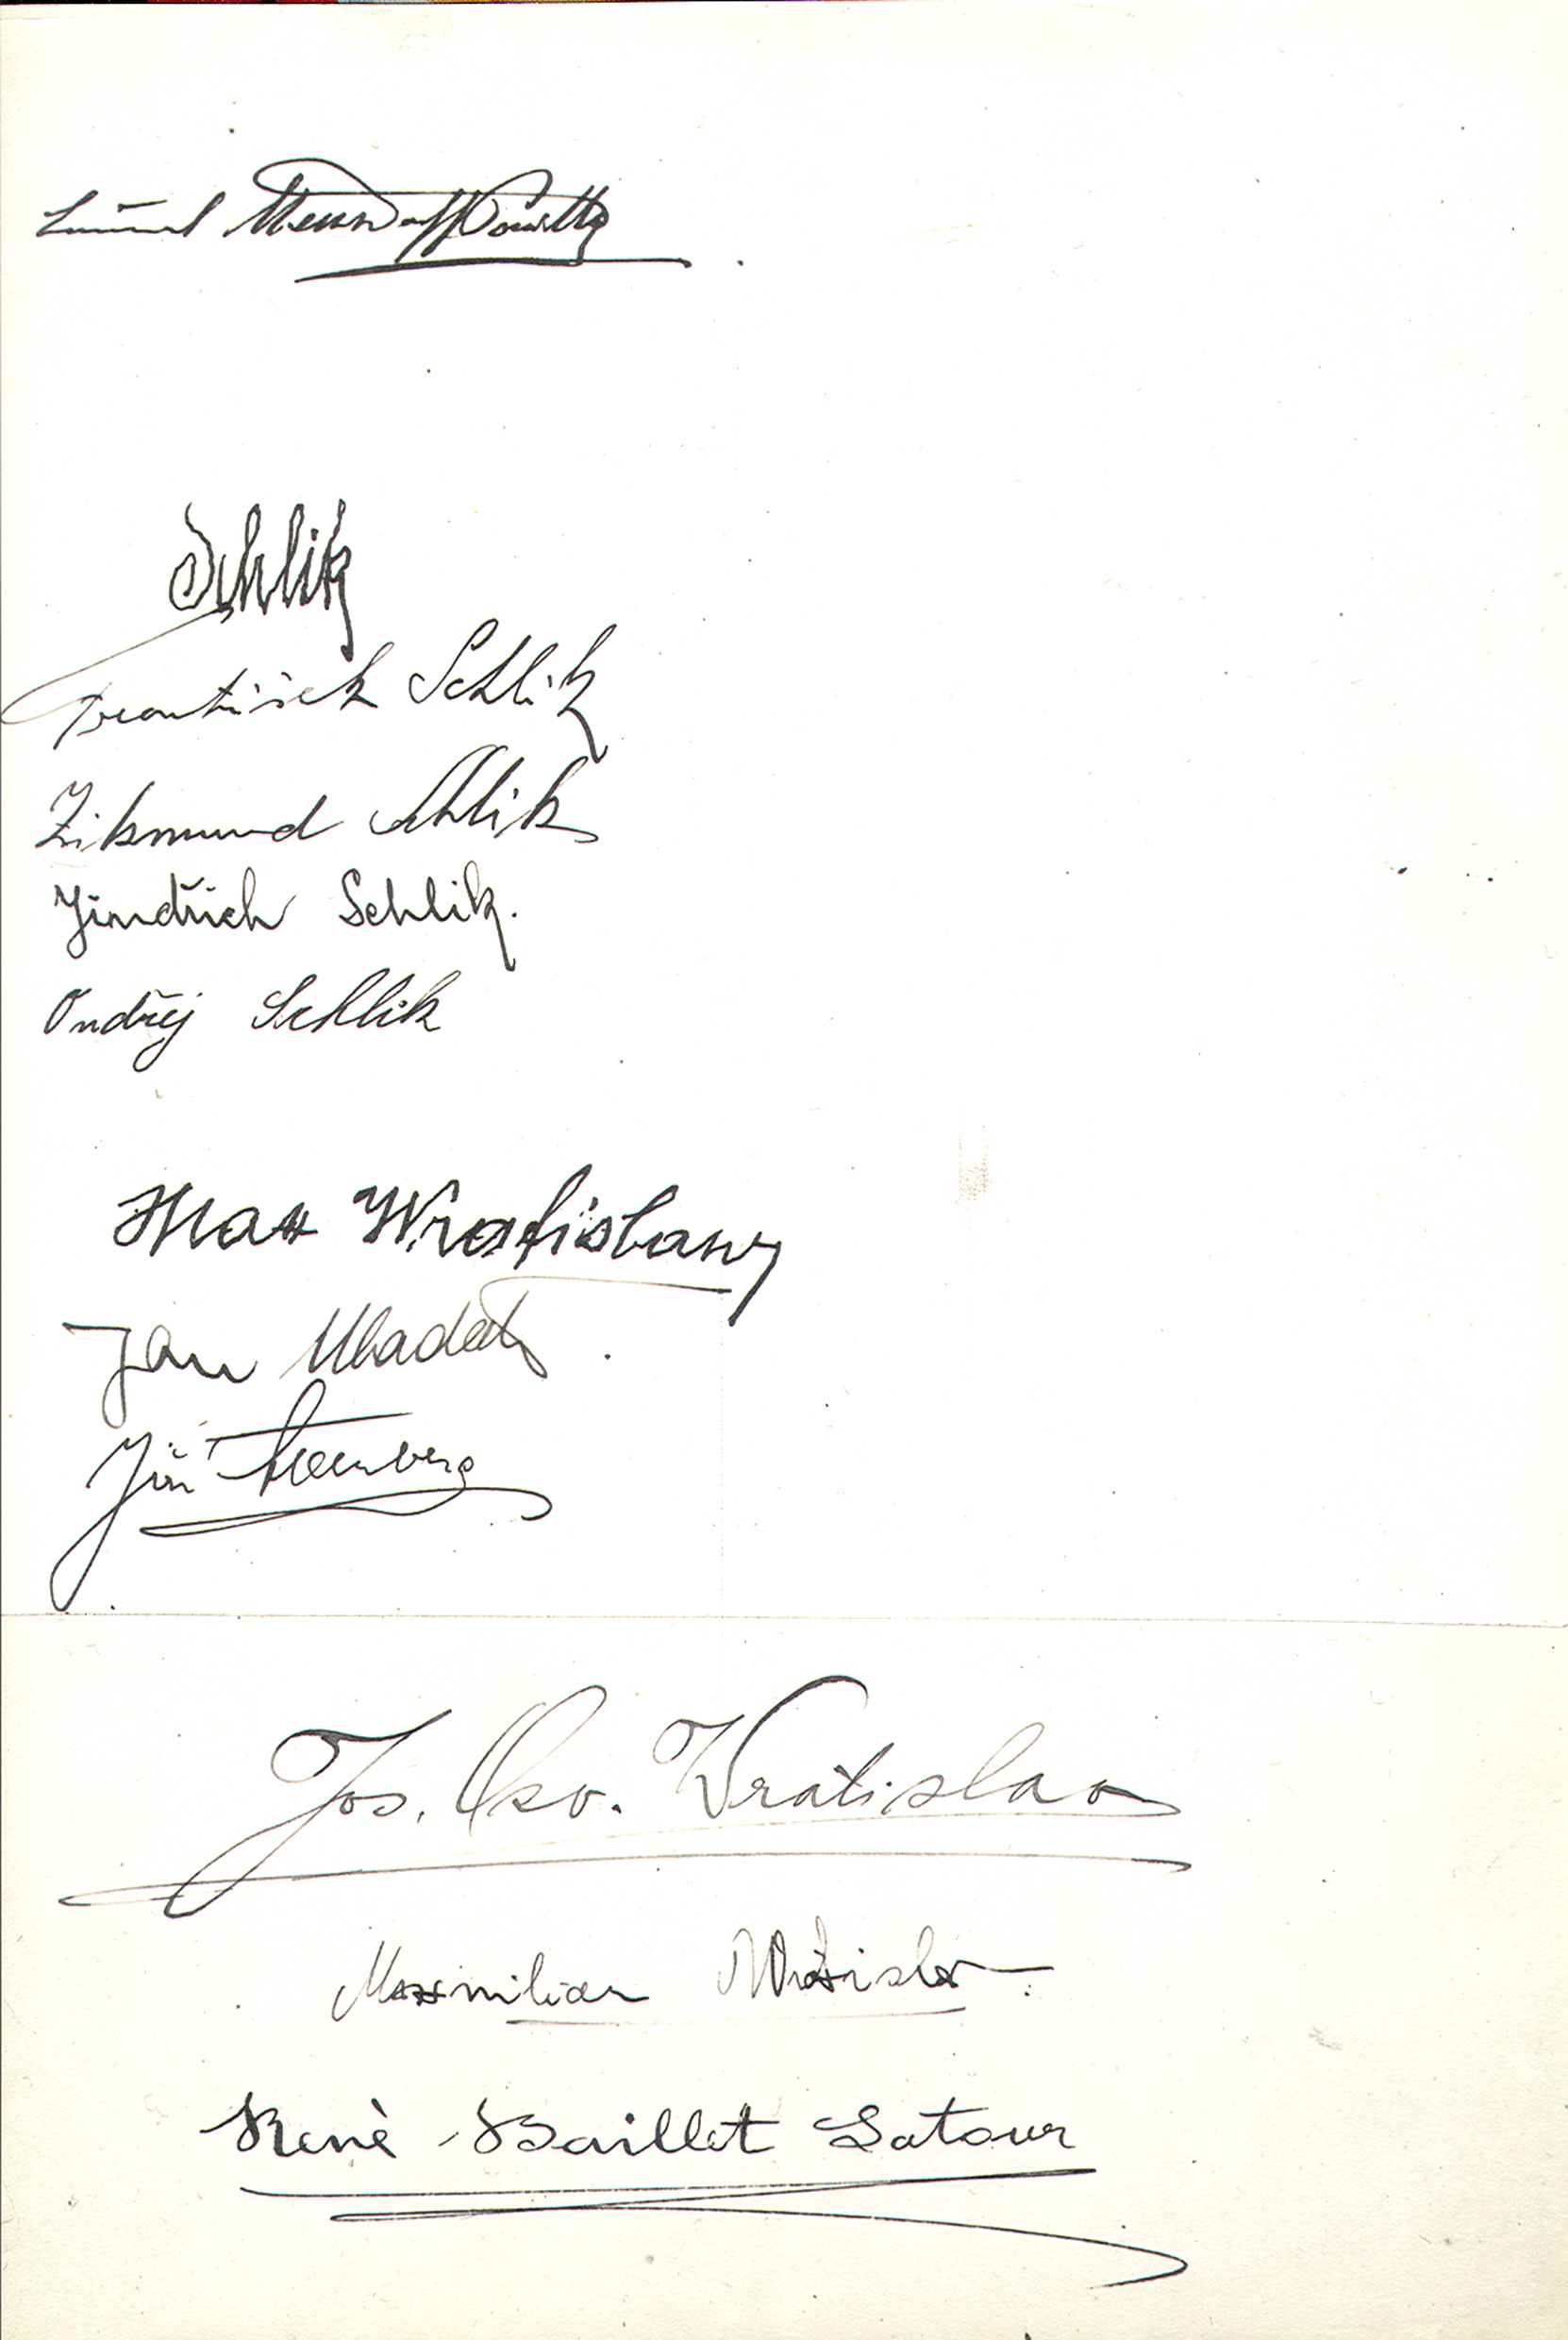 Mensdorff Pouilly
Schlik
František Schlik
Zikmund Schlik
Jindřich Schlik.
Ondřej Schlik
Max Wratislaw
Jan Mladota
Jiří Sternberg
Jos. Osw. Wratislaw
Maxmilian Wratislaw
Renè Baillet Latour